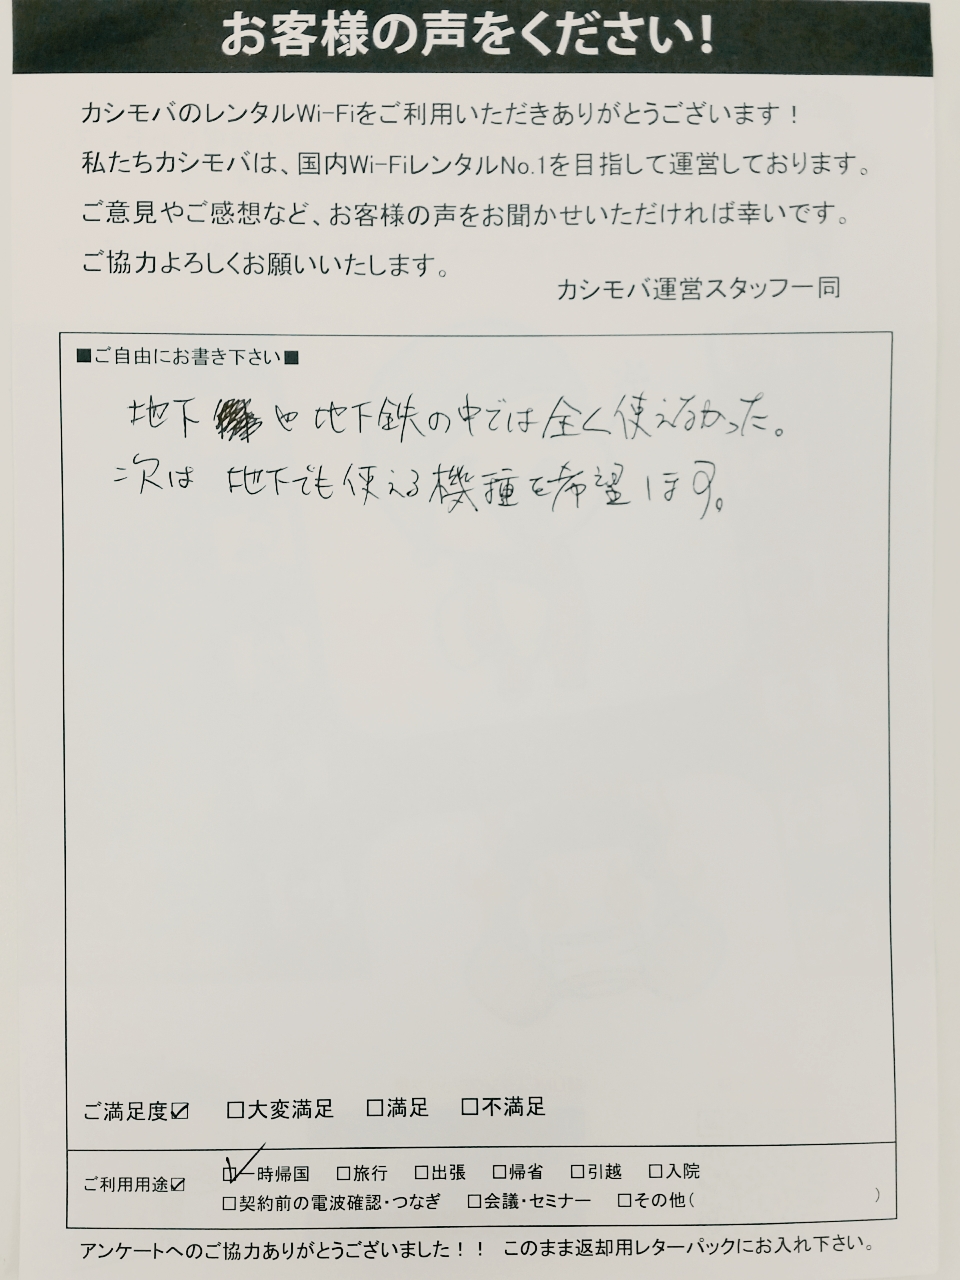 お客様の声をください!
カシモバのレンタルWi-Fiをご利用いただきありがとうございます!
私たちカシモバは、国内Wi-FiレンタルNo.1を目指して運営しております。
ご意見やご感想など、お客様の声をお聞かせいただければ幸いです。
ご協力よろしくお願いいたします。
カシモバ運営スタッフ一同
■ご自由にお書き下さい■
地下や地下鉄の中では全く使えなかった。
次は地下でも使える機種を希望します。
ご満足度☑ □大変満足 □満足 □不満足
ご利用用途☑ ☑一時帰国 □旅行 □出張 □帰省 □引越 □入院
□契約前の電波確認・つなぎ □会議・セミナー □その他( )
アンケートへのご協力ありがとうございました!! このまま返却用レターパックにお入れ下さい。